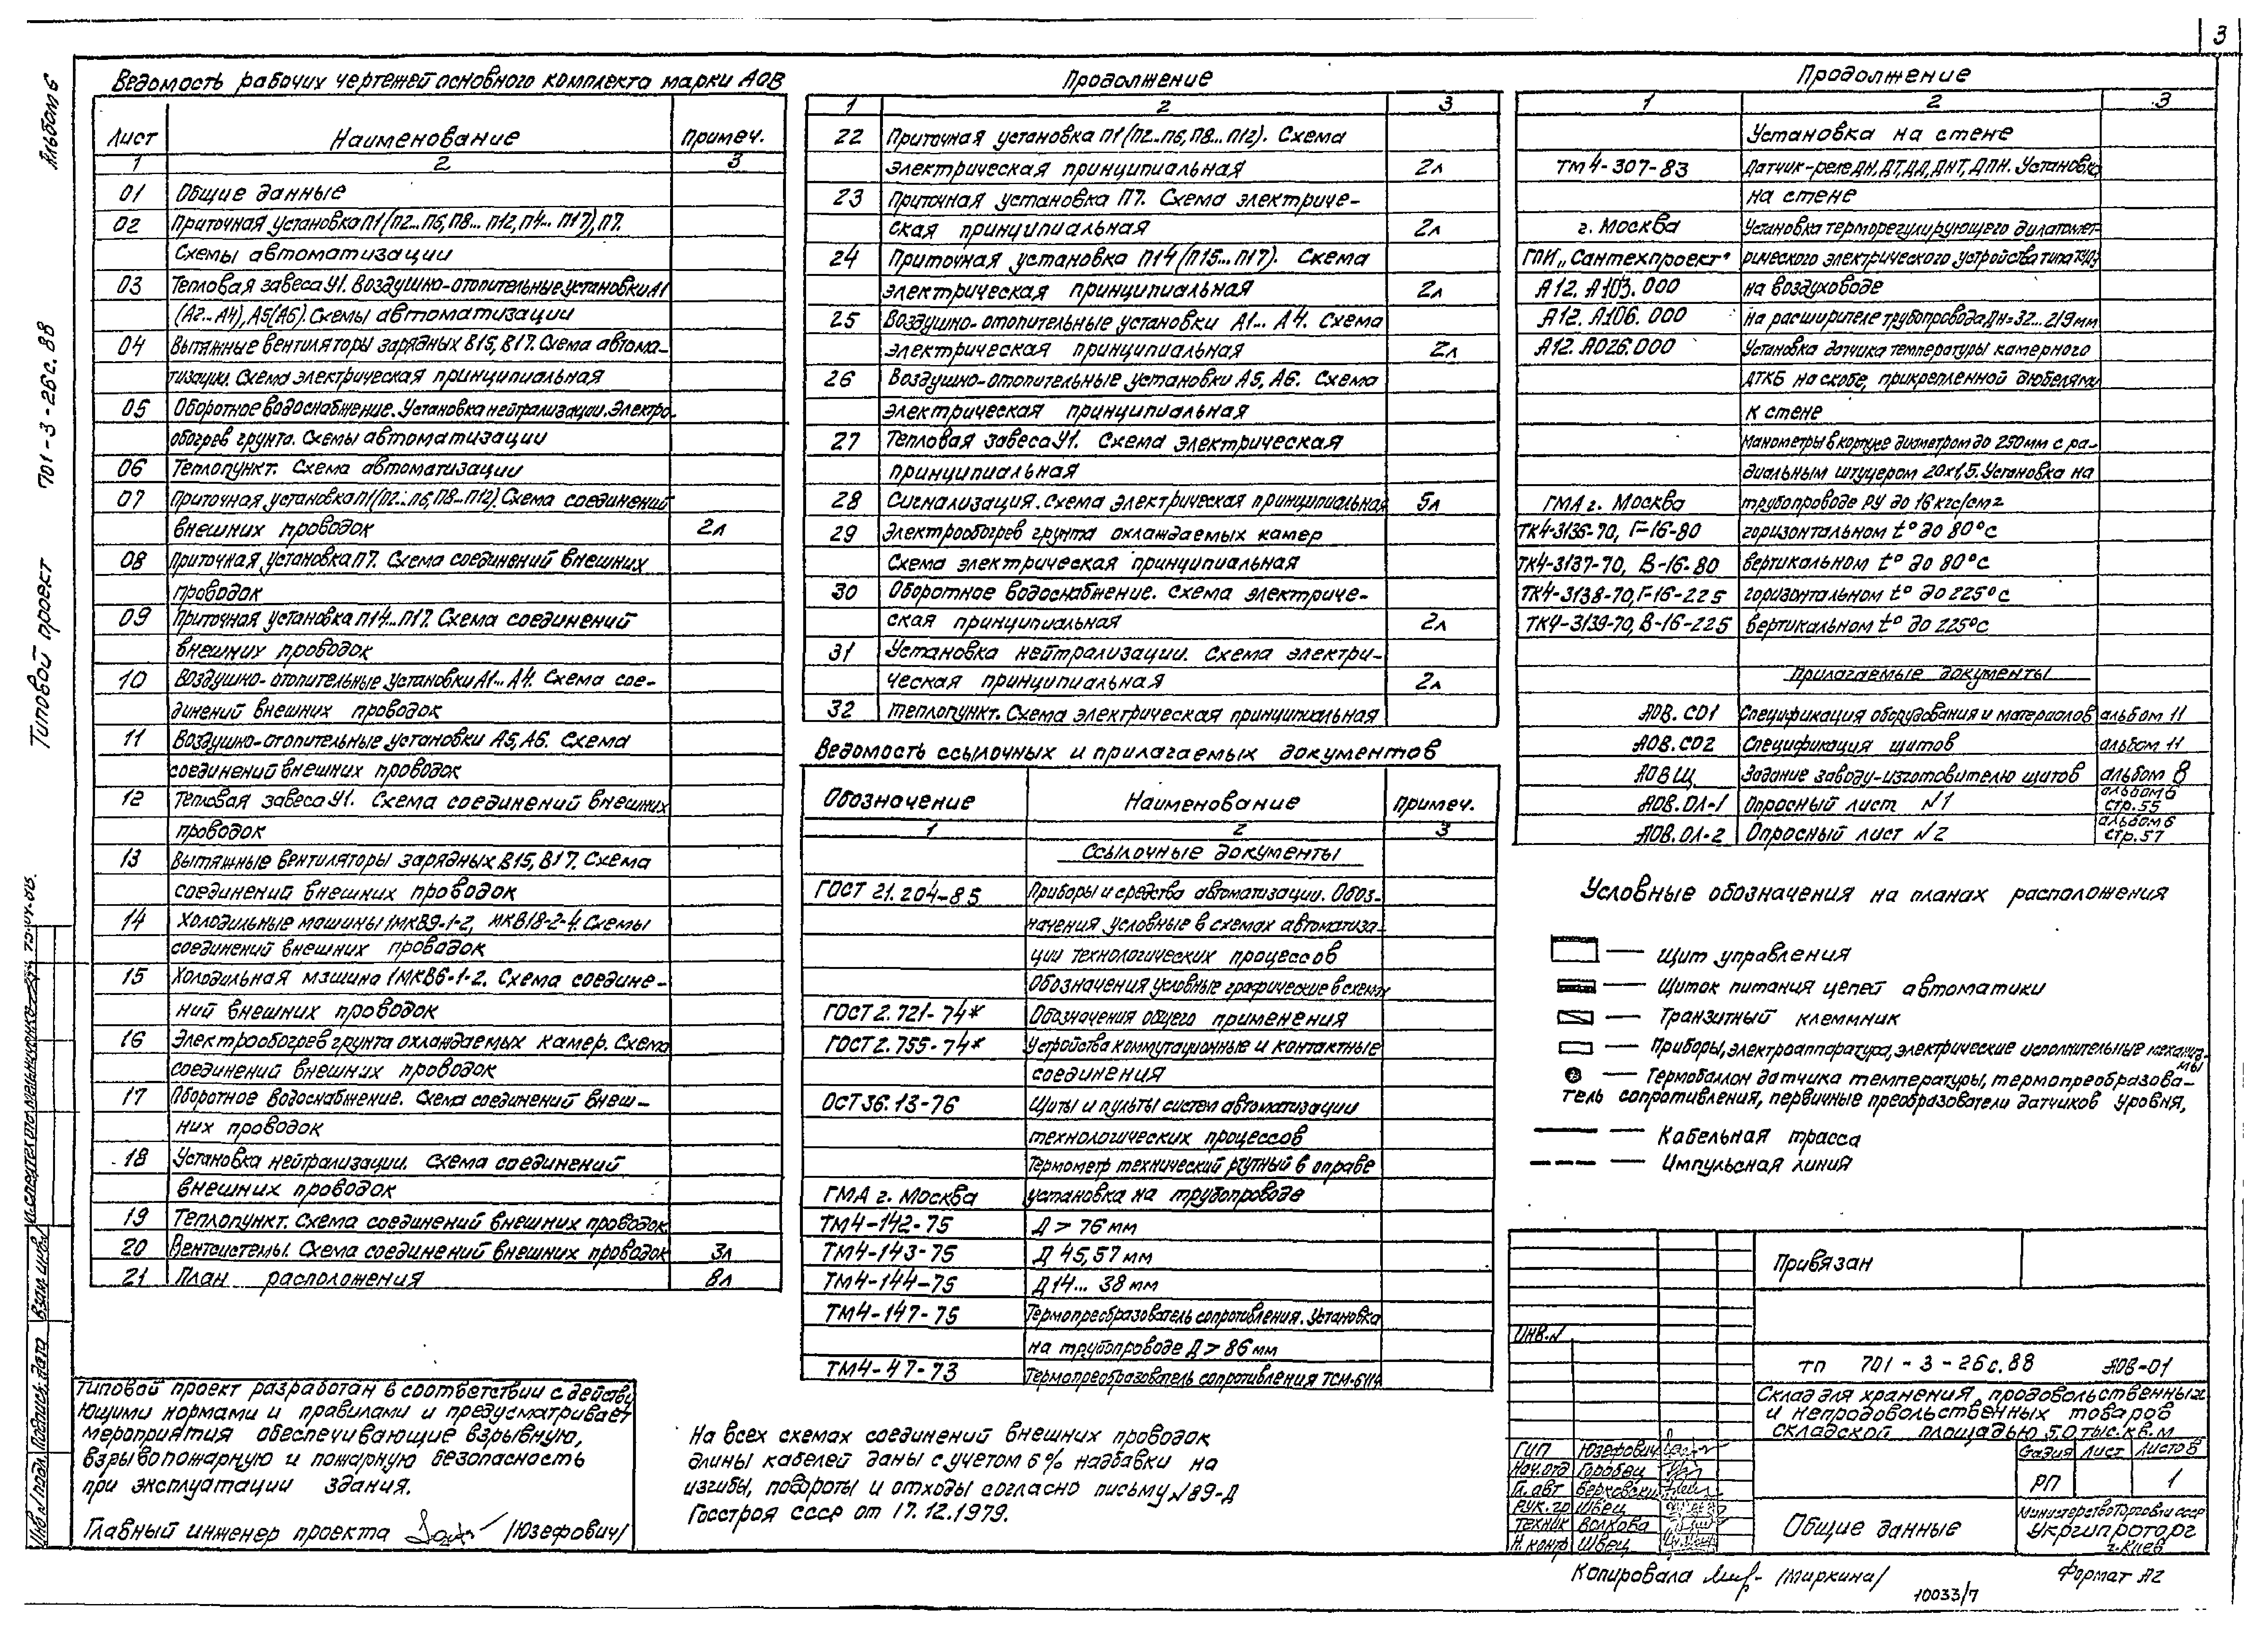 3
Альбом 6
701-3-26с.88
Типовой проект
Ведомость рабочих чертежей основного комплекта марки АОВ
Лист Наименование Примеч.
1 2 3
01 Общие данные
02 Приточная установка П1 (П2...П6, П8...П12, П4...П17), П7.
Схемы автоматизации
03 Тепловая завеса У1. Воздушно-отопительные установки А1
(А2...А4), А5(А6). Схемы автоматизации
04 Вытяжные вентиляторы зарядных В15, В17. Схема автома-
тизации. Схема электрическая принципиальная
05 Оборотное водоснабжение. Установка нейтрализации. Электро-
обогрев грунта. Схемы автоматизации
06 Теплопункт. Схема автоматизации
07 Приточная установка П1 (П2...П6, П8...П12). Схема соединений
внешних проводок 2л
08 Приточная установка П7. Схема соединений внешних
проводок
09 Приточная установка П14...П17. Схема соединений
внешних проводок
10 Воздушно-отопительные установки А1...А4. Схема сое-
динений внешних проводок
11 Воздушно-отопительные установки А5, А6. Схема
соединений внешних проводок
12 Тепловая завеса У1. Схема соединений внешних
проводок
13 Вытяжные вентиляторы зарядных В15, В17. Схема
соединений внешних проводок
14 Холодильные машины 1МКВ9-1-2, МКВ18-2-4. Схемы
соединений внешних проводок
15 Холодильная машина 1МКВ6-1-2. Схема соедине-
ний внешних проводок
16 Электрообогрев грунта охлаждаемых камер. Схема
соединений внешних проводок
17 Оборотное водоснабжение. Схема соединений внеш-
них проводок
18 Установка нейтрализации. Схема соединений
внешних проводок
19 Теплопункт. Схема соединений внешних проводок
20 Вентсистемы. Схема соединений внешних проводок 3л
21 План расположения 8л
Типовой проект разработан в соответствии с действу
ющими нормами и правилами и предусматривает
мероприятия обеспечивающие взрывную,
взрывопожарную и пожарную безопасность
при эксплуатации здания.
Главный инженер проекта /Юзефович/
Продолжение
1 2 3
22 Приточная установка П1 (П2...П6, П8...П12). Схема
электрическая принципиальная 2л
23 Приточная установка П7. Схема электриче-
ская принципиальная 2л
24 Приточная установка П14 (П15...П17). Схема
электрическая принципиальная 2л
25 Воздушно-отопительные установки А1...А4. Схема
электрическая принципиальная 2л
26 Воздушно-отопительные установки А5, А6. Схема
электрическая принципиальная
27 Тепловая завеса У1. Схема электрическая
принципиальная
28 Сигнализация. Схема электрическая принципиальная 5л
29 Электрообогрев грунта охлаждаемых камер
Схема электрическая принципиальная
30 Оборотное водоснабжение. Схема электриче-
ская принципиальная 2л
31 Установка нейтрализации. Схема электри-
ческая принципиальная 2л
32 Теплопункт. Схема электрическая принципиальная
Ведомость ссылочных и прилагаемых документов
Обозначение Наименование Примеч.
1 2 3
Ссылочные документы
ГОСТ 21.204-85 Приборы и средства автоматизации. Обоз-
начения условные в схемах автоматиза-
ции технологических процессов
Обозначения условные графические в схемах
ГОСТ 2.721-74* Обозначения общего применения
ГОСТ 2.755-74* Устройства коммутационные и контактные
соединения
ОСТ 36.13-76 Щиты и пульты систем автоматизации
технологических процессов
Термометр технический ртутный в оправе
ГМА г. Москва установка на трубопроводе
ТМ4-142-75 Д > 76 мм
ТМ4-143-75 Д 45, 57 мм
ТМ4-144-75 Д 14... 38 мм
ТМ4-147-75 Термопреобразователь сопротивления. Установка
на трубопроводе Д > 86 мм
ТМ4-47-73 Термопреобразователь сопротивления ТСМ-6114
На всех схемах соединений внешних проводок
длины кабелей даны с учетом 6% надбавки на
изгибы, повороты и отходы согласно письму N 89-Д
Госстроя СССР от 17.12.1979.
Продолжение
1 2 3
Установка на стене
ТМ4-307-83 Датчик-реле ДН, ДТ, ДД, ДНТ, ДПН. Установка
на стене
г. Москва Установка терморегулирующего дилатомет-
ГПИ „Сантехпроект" рического электрического устройства типа ТУДЭ
А12. А103. 000 на воздуховоде
А12. А106. 000 на расширителе трубопровода Дн=32...219 мм
А12. А026.000 Установка датчика температуры камерного
ДТКБ на скобе, прикрепленной дюбелями
к стене
Манометры в корпусе диаметром до 250мм с ра-
диальным штуцером 20х1,5. Установка на
ГМА г. Москва трубопроводе РУ до 16 кгс/см2
ТК4-3136-70, Г-16-80 горизонтальном t° до 80°С
ТК4-3137-70, В-16-80 вертикальном t° до 80°С
ТК4-3138-70, Г-16-225 горизонтальном t° до 225°С
ТК4-3139-70, В-16-225 вертикальном t° до 225°С
Прилагаемые документы
АОВ. СО1 Спецификация оборудования и материалов альбом 11
АОВ. СО2 Спецификация щитов альбом 11
АОВ Щ Задание заводу-изготовителю щитов альбом 8
АОВ. ОЛ-1 Опросный лист N1 альбом 6 стр.55
АОВ. ОЛ-2 Опросный лист N2 альбом 6 стр.57
Условные обозначения на планах расположения
— Щит управления
— Щиток питания цепей автоматики
— Транзитный клеммник
— Приборы, электроаппаратура, электрические исполнительные механиз-
мы
— Термобаллон датчика температуры, термопреобразова-
тель сопротивления, первичные преобразователи датчиков уровня,
— Кабельная трасса
— Импульсная линия
Привязан
ИНВ. N
ТП 701-3-26с.88 АОВ-01
Склад для хранения продовольственных
и непродовольственных товаров
складской площадью 5.0 тыс.кв.м
ГИП Юзефович
Нач.отд Горобец
Гл. авт Берковский
Рук. гр Швец
Техник Волкова
Н. контр Швец
Стадия Лист Листов
РП 1
Общие данные
Министерство Торговли СССР
Укргипроторг
г. Киев
Копировала /Миркина/
10033/7
Формат А2
Инв. N подл. Подпись и дата Взам. инв. N